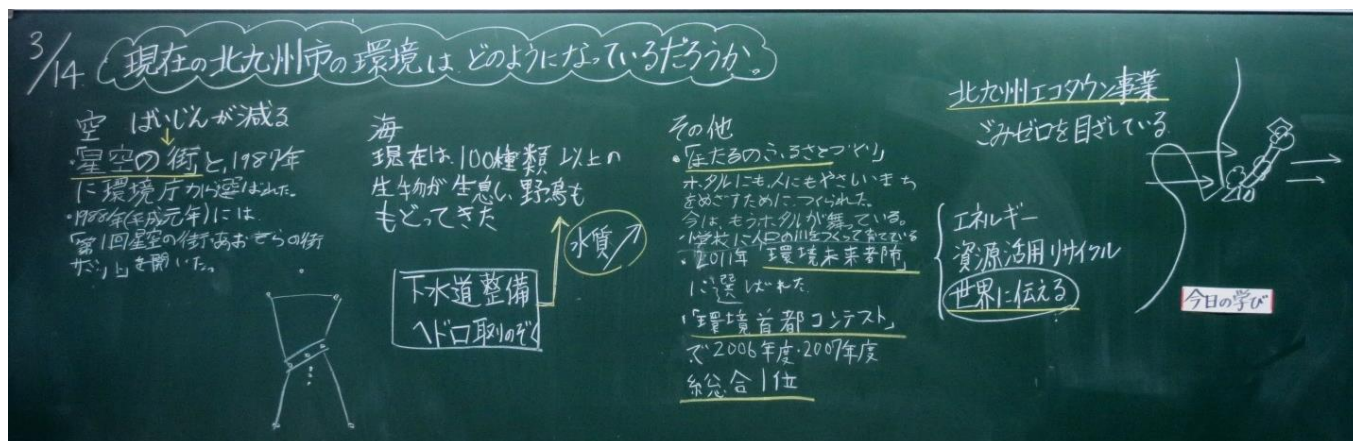 3/14 現在の北九州市の環境は、どのようになっているだろうか。
空 ばいじんが減る
・星空の街と、1987年
に環境庁から選ばれた。
・1988年(平成元年)には
「第1回星空の街・あおぞらの街
サミット」を開いた。
海
現在は、100種類以上の
生物が生息し、野鳥も
もどってきた
水質
下水道整備
ヘドロ取りのぞく
その他
・「ほたるのふるさとづくり」
ホタルにも、人にもやさしいまち
をめざすためにつくられた。
今は、もうホタルが舞っている。
小学校に人口の川をつくって育てている
・2011年「環境未来都市」
に選ばれた
・「環境首都コンテスト」
で2006年度・2007年度
総合1位
北九州エコタウン事業
ごみゼロを目ざしている
エネルギー
資源活用リサイクル
世界に伝える
今日の学び